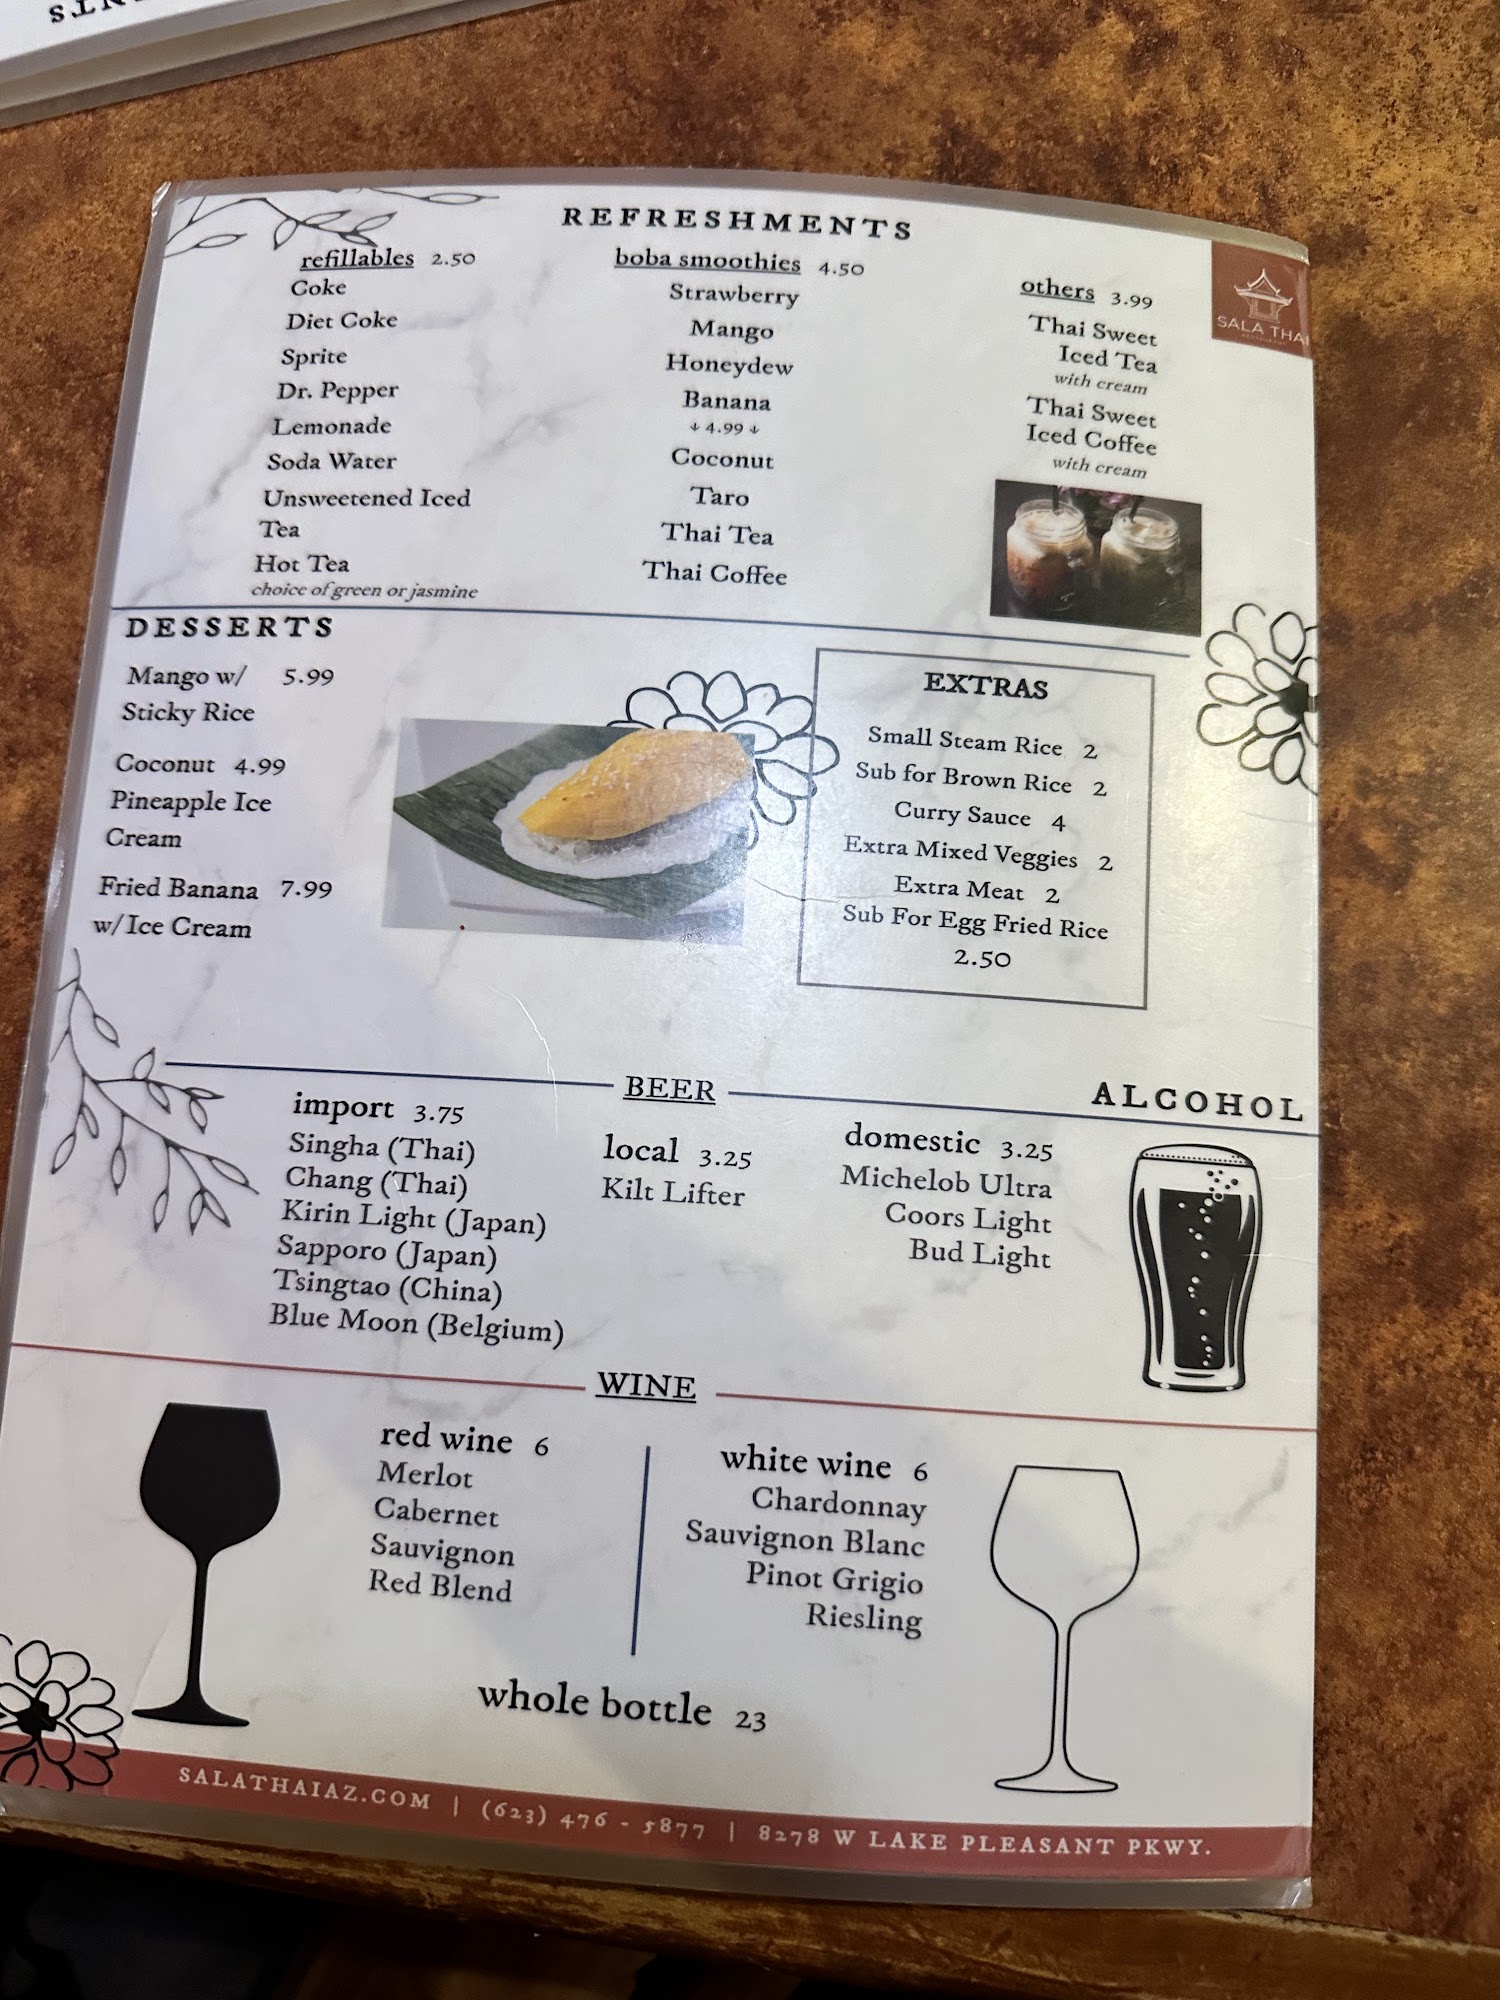 REFRESHMENTS
refillables 2.50
Coke
Diet Coke
Sprite
Dr. Pepper
Lemonade
Soda Water
Unsweetened Iced
Tea
Hot Tea
choice of green or jasmine
boba smoothies 4.50
Strawberry
Mango
Honeydew
Banana
↓ 4.99 ↓
Coconut
Taro
Thai Tea
Thai Coffee
others 3.99
Thai Sweet
Iced Tea
with cream
Thai Sweet
Iced Coffee
with cream
SALA THAI
DESSERTS
Mango w/ 5.99
Sticky Rice
Coconut 4.99
Pineapple Ice
Cream
Fried Banana 7.99
w/ Ice Cream
EXTRAS
Small Steam Rice 2
Sub for Brown Rice 2
Curry Sauce 4
Extra Mixed Veggies 2
Extra Meat 2
Sub For Egg Fried Rice
2.50
ALCOHOL
BEER
import 3.75
Singha (Thai)
Chang (Thai)
Kirin Light (Japan)
Sapporo (Japan)
Tsingtao (China)
Blue Moon (Belgium)
local 3.25
Kilt Lifter
domestic 3.25
Michelob Ultra
Coors Light
Bud Light
WINE
red wine 6
Merlot
Cabernet
Sauvignon
Red Blend
white wine 6
Chardonnay
Sauvignon Blanc
Pinot Grigio
Riesling
whole bottle 23
SALATHAIAZ.COM | (623) 476 - 5877 | 8278 W LAKE PLEASANT PKWY.